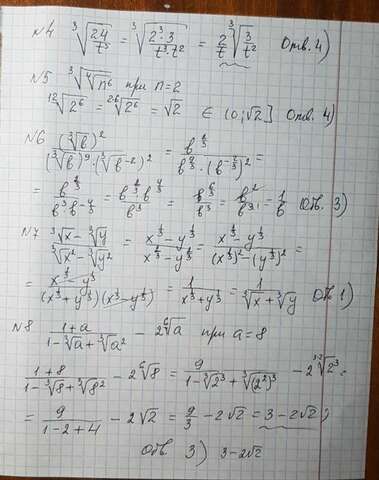 №4 ∛(24/t⁵) = ∛(2³·3/(t³·t²)) = 2/t ∛(3/t²) Отв. 4)
№5 ∛(⁴√n⁶) при n=2
¹²√2⁶ = ²·⁶√2⁶ = √2 ∈ (0; √2] Отв. 4)
№6 (∛b)²/((∛b)⁹·(∛b⁻²)²) = b^(2/3)/(b^(9/3)·(b^(-2/3))²) =
= b^(2/3)/(b³·b^(-4/3)) = b^(2/3)b^(4/3)/b³ = b^(6/3)/b³ = b²/b³ = 1/b Отв. 3)
№7 (∛x − ∛y)/(∛x² − ∛y²) = (x^(1/3) − y^(1/3))/(x^(2/3) − y^(2/3)) = (x^(1/3) − y^(1/3))/((x^(1/3))² − (y^(1/3))²) =
= (x^(1/3) − y^(1/3))/((x^(1/3) + y^(1/3))(x^(1/3) − y^(1/3))) = 1/(x^(1/3) + y^(1/3)) = 1/(∛x + ∛y) Отв 1)
№8 (1+a)/(1−∛a+∛a²) − 2⁶√a при a=8
(1+8)/(1−∛8+∛8²) − 2⁶√8 = 9/(1−∛2³+∛(2²)³) − 2 ³·²√2³ =
= 9/(1−2+4) − 2√2 = 9/3 − 2√2 = 3−2√2;
Отв 3) 3−2√2